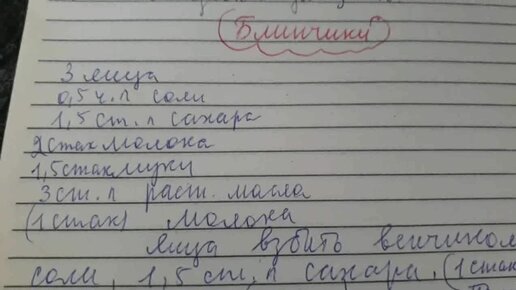 Блинчики
3 яйца
0,5 ч.л соли
1,5 ст.л сахара
2 стак молока
1,5 стак муки
3 ст.л раст. масла
(1 стак) молока
яйца взбить венчиком
соли, 1,5 ст.л сахара, (1 стак